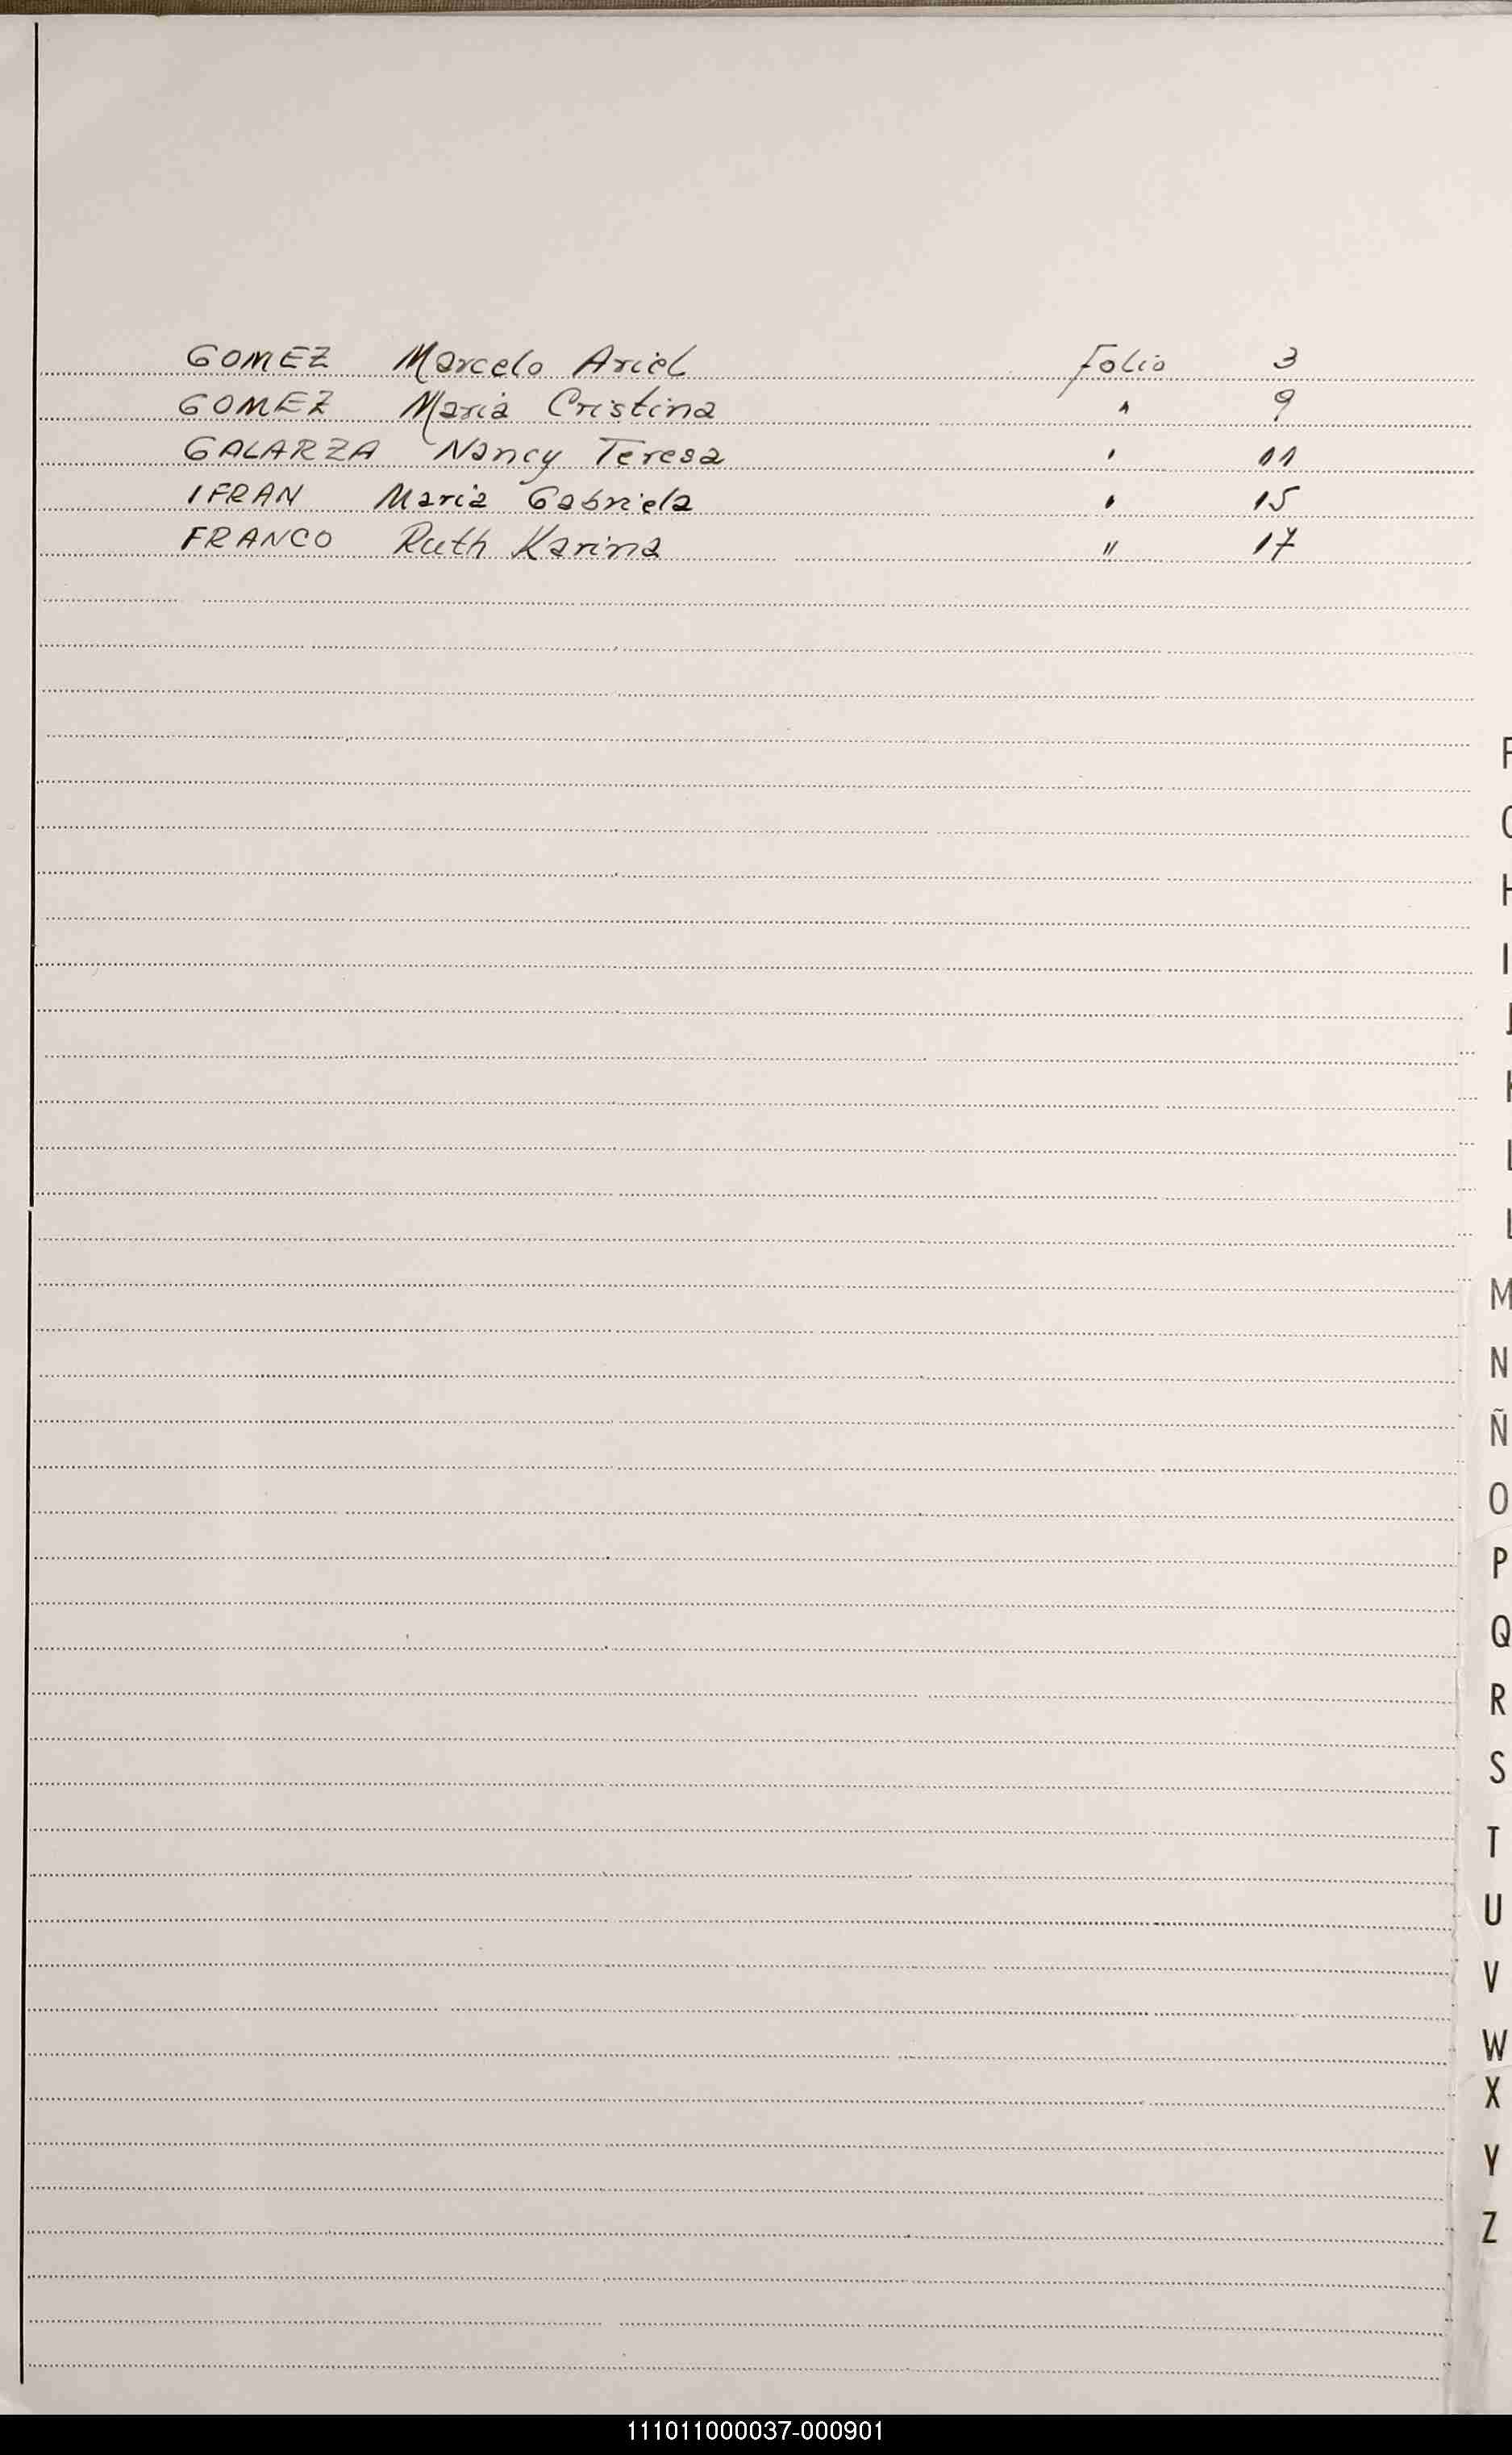 GOMEZ Marcelo Ariel Folio 3
GOMEZ Maria Cristina " 9
GALARZA Nancy Teresa " 11
IFRAN Maria Gabriela " 15
FRANCO Ruth Karina " 17
F
G
H
I
J
K
L
L
M
N
Ñ
O
P
Q
R
S
T
U
V
W
X
Y
Z
111011000037-000901